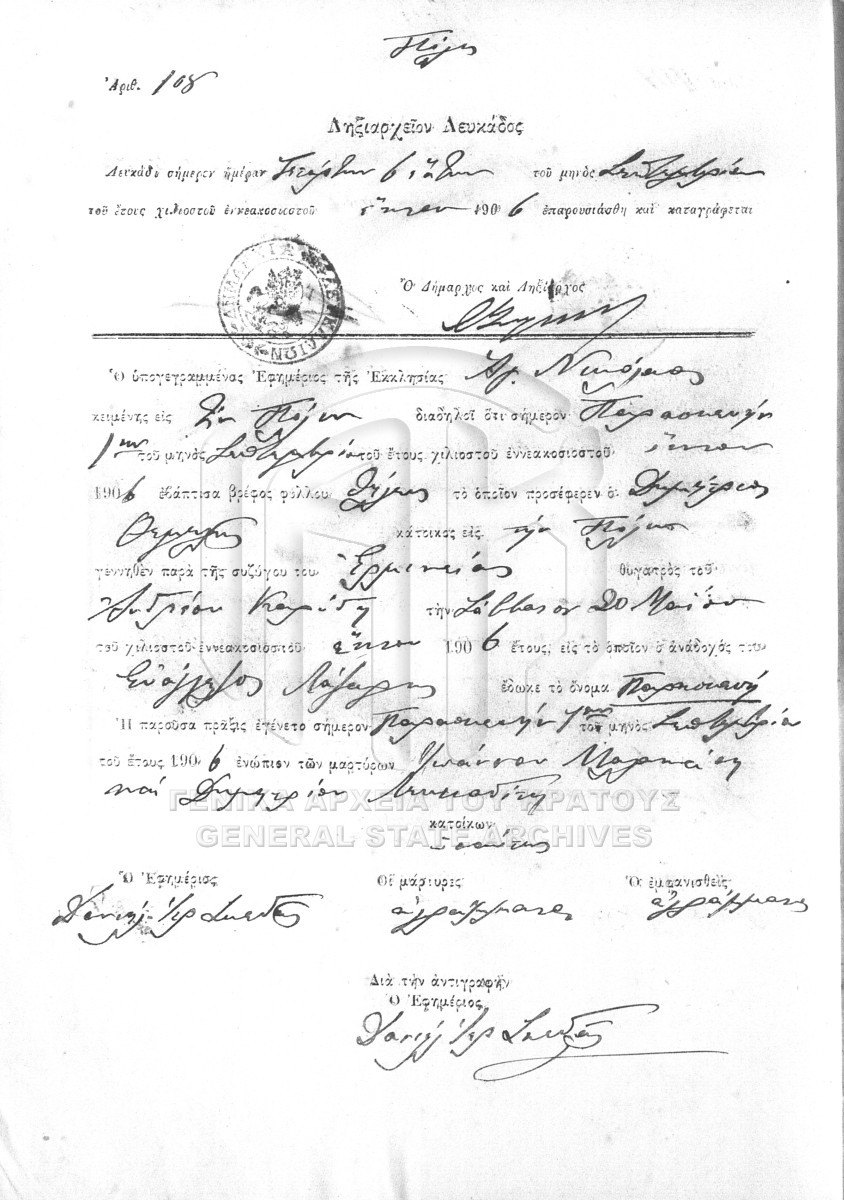 Πόλις
Ἀριθ. 108
Ληξιαρχεῖον Λευκάδος
Λευκάδι σήμερον ἡμέραν Τετάρτην 6 τοῦ μηνὸς Σεπτεμβρίου
τοῦ ἔτους χιλιοστοῦ ἐννεακοσιοστοῦ ἕκτου 1906 ἐπαρουσιάσθη καὶ καταγράφεται
Ὁ Δήμαρχος καὶ Ληξίαρχος
ΔΗΜΑΡΧΙΑ ΛΕΥΚΑΔΙΩΝ
Ὁ ὑπογεγραμμένος Ἐφημέριος τῆς Ἐκκλησίας Ἁγ. Νικόλαος
κειμένης εἰς τὴν Πόλιν διαδηλοῖ ὅτι σήμερον Παρασκευὴν
1ην τοῦ μηνὸς Σεπτεμβρίου τοῦ ἔτους χιλιοστοῦ ἐννεακοσιοστοῦ ἕκτου
1906 ἐβάπτισα βρέφος φύλλου θήλεος τὸ ὁποῖον προσέφερεν ὁ Δημήτριος
κάτοικος εἰς τὴν Πόλιν
γεννηθὲν παρὰ τῆς συζύγου του Ἑρμινείας θυγατρὸς τοῦ
Ἀνδρέου τὴν Σάββατον 20 Μαΐου
τοῦ χιλιοστοῦ ἐννεακοσιοστοῦ ἕκτου 1906 ἔτους, εἰς τὸ ὁποῖον ὁ ἀνάδοχός του
Εὐάγγελος Λάζαρης ἔδωκε τὸ ὄνομα Παρασκευὴ
Ἡ παροῦσα πρᾶξις ἐγένετο σήμερον Παρασκευὴν 1ην τοῦ μηνὸς Σεπτεμβρίου
τοῦ ἔτους 1906 ἐνώπιον τῶν μαρτύρων Ἰωάννου
καὶ Δημητρίου
ΓΕΝΙΚΑ ΑΡΧΕΙΑ ΤΟΥ ΚΡΑΤΟΥΣ
GENERAL STATE ARCHIVES
κατοίκων
Ὁ Ἐφημέριος Οἱ μάρτυρες Ὁ ἐμφανισθεὶς
Δανιὴλ Ἱερ ἀγράμματοι ἀγράμματος
Διὰ τὴν ἀντιγραφὴν
Ὁ Ἐφημέριος
Δανιὴλ Ἱερ